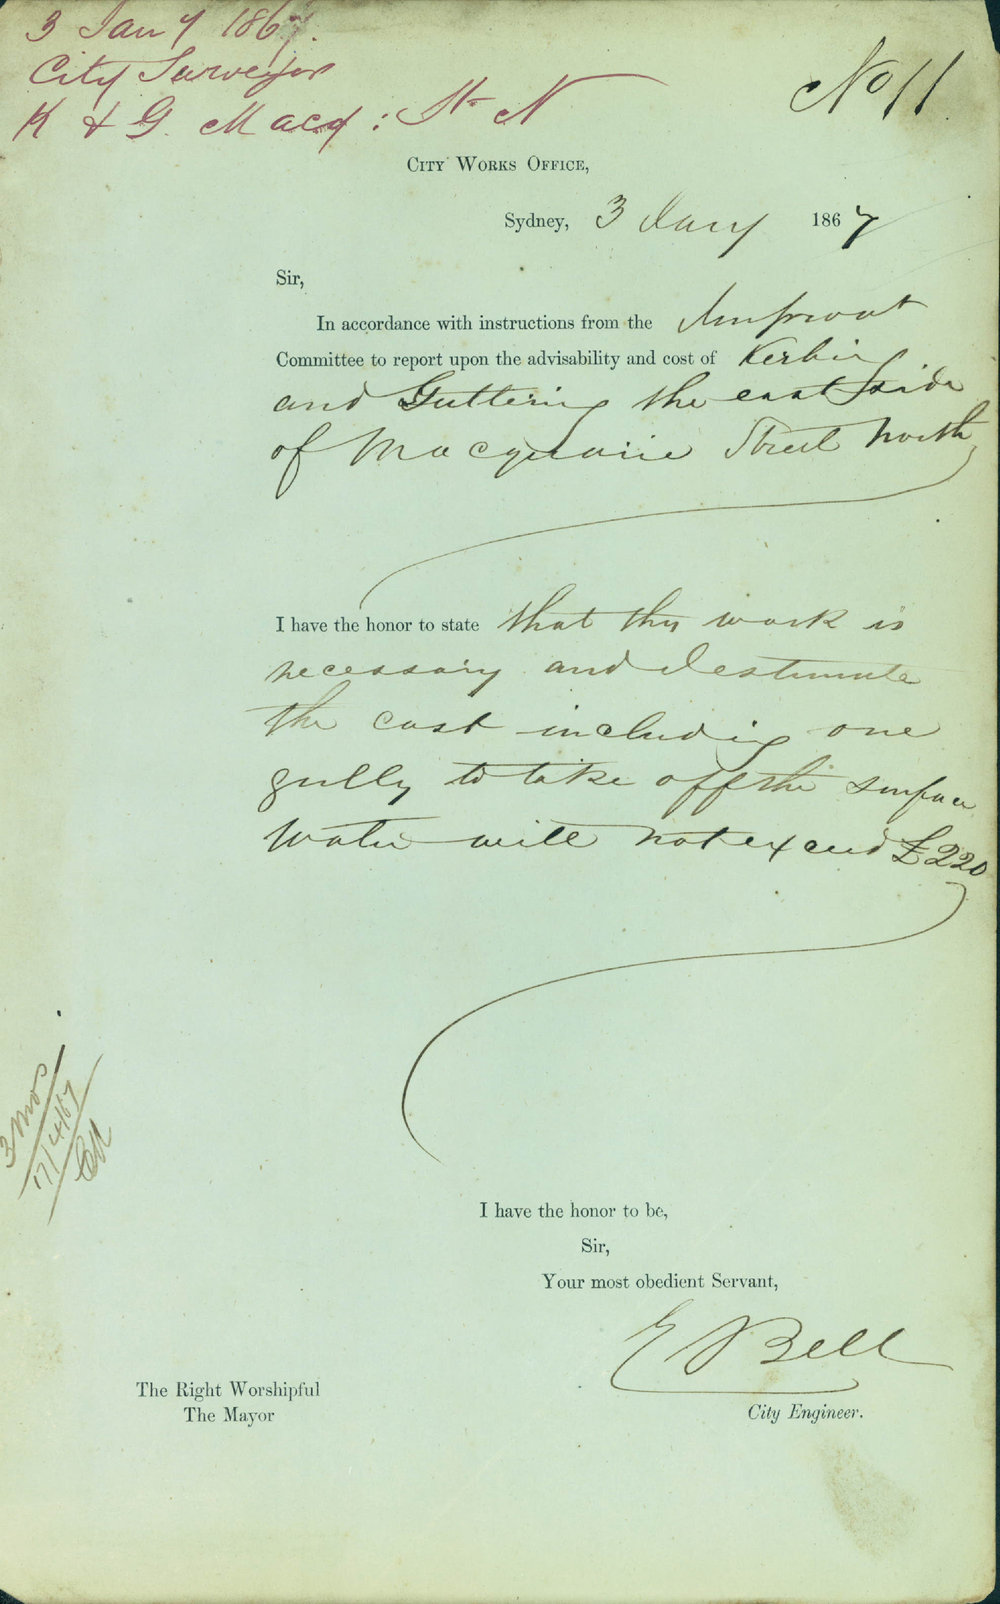 3 Jany 1867.
City Surveyor
K & G. Macq: St N
No 11
City Works Office,
Sydney, 3 Jany 1867
Sir,
In accordance with instructions from the Improvnt
Committee to report upon the advisability and cost of Kerbing
and Guttering the east side
of Macquarie Street North,
I have the honor to state that this work is
necessary and I estimate
the cost including one
gully to take off the surface
water will not exceed £220
3 mos
17/4/67
I have the honor to be,
Sir,
Your most obedient Servant,
E Bell
City Engineer.
The Right Worshipful
The Mayor